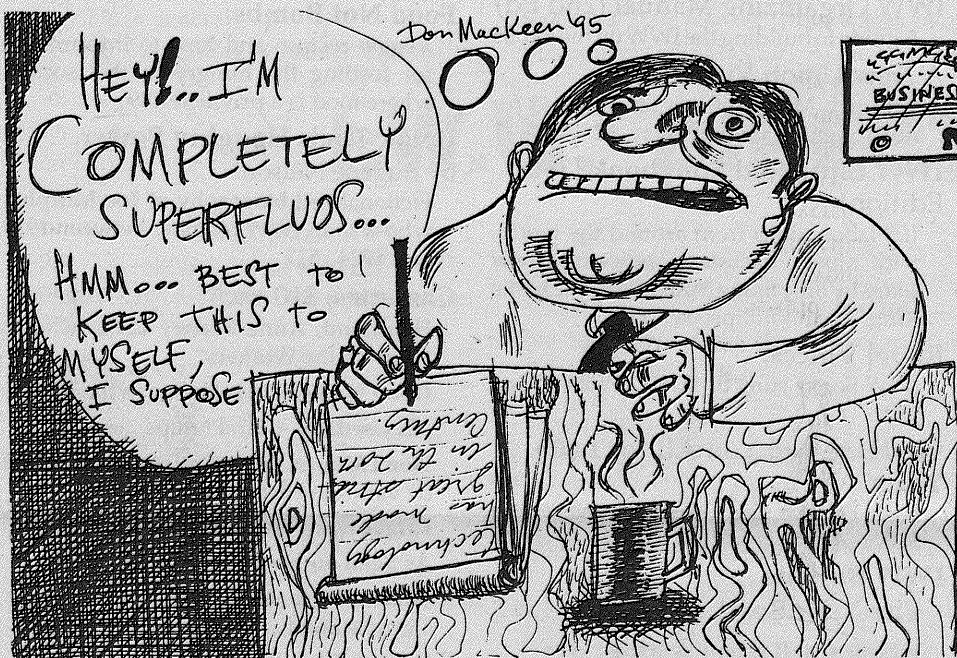 Don Mackeen '95
HEY!..I'M
COMPLETELY
SUPERFLUOS...
HMM... BEST TO
KEEP THIS TO
MYSELF,
I SUPPOSE
BUSINES
technology
has made
great
in the 20th
Century